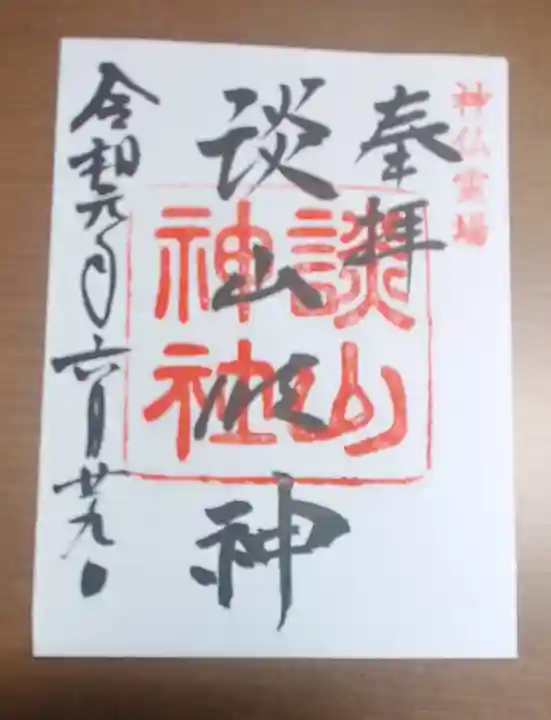 神仏霊場
奉拝
談山岐神
談山
神社
令和元年六月廿九日